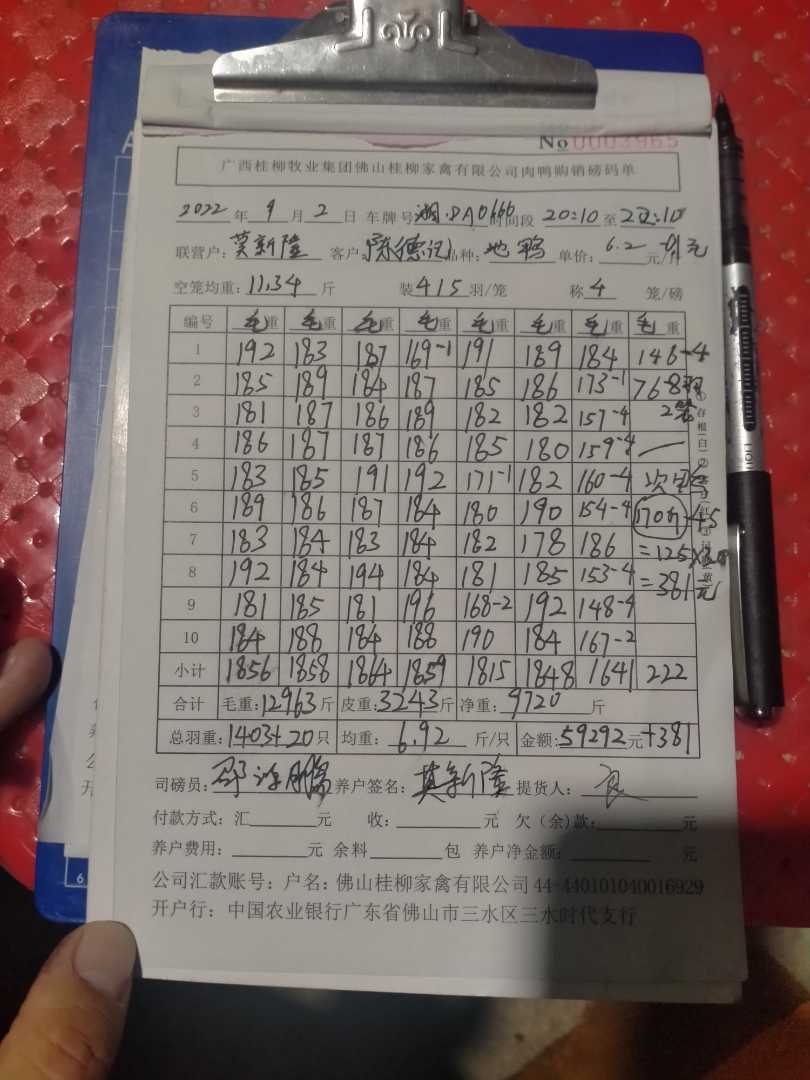 No 0003965
广西桂柳牧业集团佛山桂柳家禽有限公司肉鸭购销磅码单
2022 年 9 月 2 日 车牌号 湘 时间段 20:10 至 22:10
联营户: 莫新隆 客户: 陈德记 品种: 地鸭 单价: 6.2 元
空笼均重: 11.34 斤 装 415 羽/笼 称 4 笼/磅
编号 毛重 毛重 毛重 毛重 毛重 毛重 毛重 毛重
1 192 183 187 169-1 191 189 184 146-4
2 185 189 184 187 185 186 173-1 76-8羽
3 181 187 186 189 182 182 157-4 2笼
4 186 187 187 186 185 180 159-4 —
5 183 185 191 192 171-1 182 160-4
6 189 186 187 184 180 190 154-4 170斤-45
7 183 184 183 184 182 178 186 =125×
8 192 184 194 184 181 185 153-4 =381元
9 181 185 181 196 168-2 192 148-4
10 184 188 184 188 190 184 167-2
小计 1856 1858 1864 1859 1815 1848 1641 222
合计 毛重: 12963 斤 皮重: 3243 斤 净重: 9720 斤
总羽重: 1403+20 只 均重: 6.92 斤/只 金额: 59292 元+381
司磅员: 养户签名: 莫新隆 提货人:
付款方式: 汇 元 收: 元 欠(余)款: 元
养户费用: 元 余料 包 养户净金额: 元
公司汇款账号: 户名: 佛山桂柳家禽有限公司 44-440101040016929
开户行: 中国农业银行广东省佛山市三水区三水时代支行